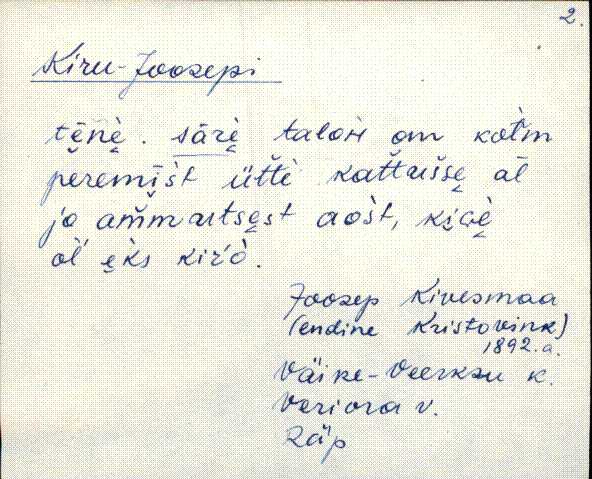 2.
Kiru-Joosepi
tēnè. sārè talon om kotm
peremīšt ütťè kaťťušse al
jo am̌mutsest aošt, kivè
oľ eks kiŕò.
Joosep Kivesmaa
(endine Kristovink)
1892.a.
Väike-Veerksu k.
Veriora v.
Räp